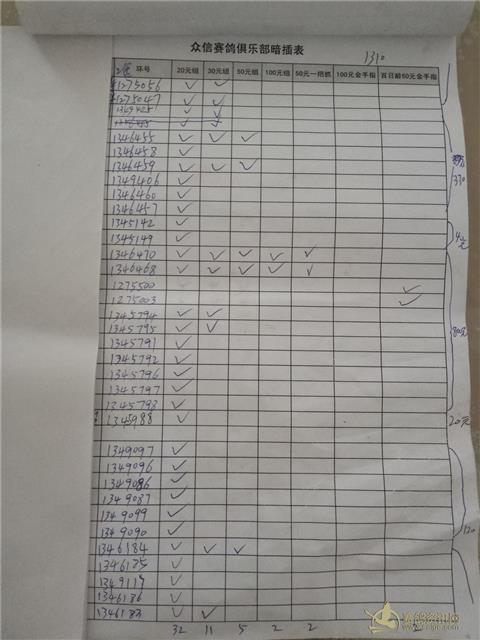 众信赛鸽俱乐部暗插表
1310
环号 20元组 30元组 50元组 100元组 50元一把抓 100元金手指 百日龄50元金手指
1275056 ✓ ✓
1275047 ✓ ✓
1346455 ✓ ✓ ✓
1346458 ✓
1346459 ✓ ✓ ✓
1349406 ✓
1346460 ✓
1346457 ✓
330
1345142 ✓
1345149 ✓
1346470 ✓ ✓ ✓ ✓ ✓
1346468 ✓ ✓ ✓ ✓ ✓
1275500 ✓
1275003 ✓
1345794 ✓ ✓
1345795 ✓ ✓
1345791 ✓
1345792 ✓
1345796 ✓
1345797 ✓
1345798 ✓
1345988 ✓
20元
1349097 ✓
1349096 ✓
1349086 ✓
1349087 ✓
1349099 ✓
1349090 ✓
120
1346184 ✓ ✓ ✓
1346185 ✓
1349117 ✓
1346186 ✓
1346183 ✓ ✓
32 11 5 2 2